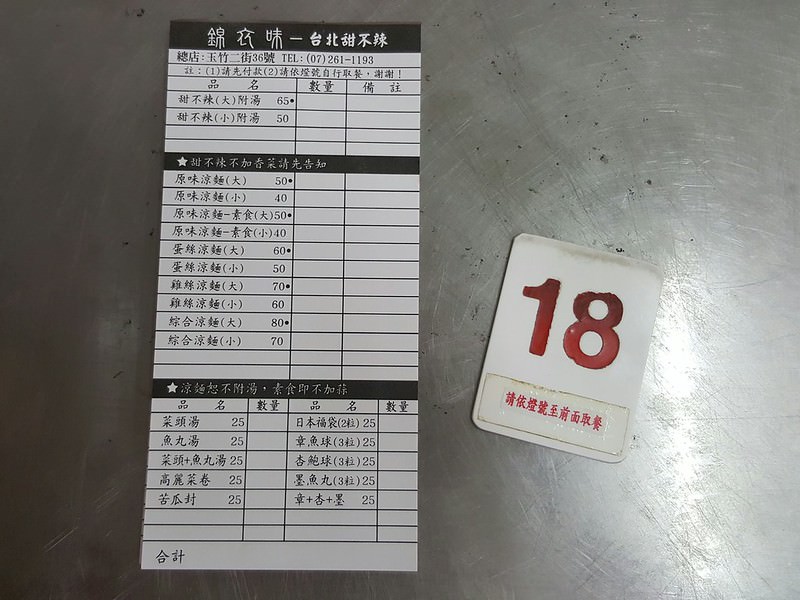 錦衣味－台北甜不辣
總店:玉竹二街36號 TEL:(07)261-1193
註:(1)請先付款(2)請依燈號自行取餐，謝謝！
品名 數量 備註
甜不辣(大)附湯 65•
甜不辣(小)附湯 50
★甜不辣不加香菜請先告知
原味涼麵(大) 50•
原味涼麵(小) 40
原味涼麵-素食(大)50•
原味涼麵-素食(小)40
蛋絲涼麵(大) 60•
蛋絲涼麵(小) 50
雞絲涼麵(大) 70•
雞絲涼麵(小) 60
綜合涼麵(大) 80•
綜合涼麵(小) 70
★涼麵恕不附湯，素食即不加蒜
品名 數量 品名 數量
菜頭湯 25 日本福袋(2粒)25
魚丸湯 25 章魚球(3粒)25
菜頭+魚丸湯 25 杏鮑球(3粒)25
高麗菜卷 25 墨魚丸(3粒)25
苦瓜封 25 章+杏+墨 25
合計
18
請依燈號至前面取餐